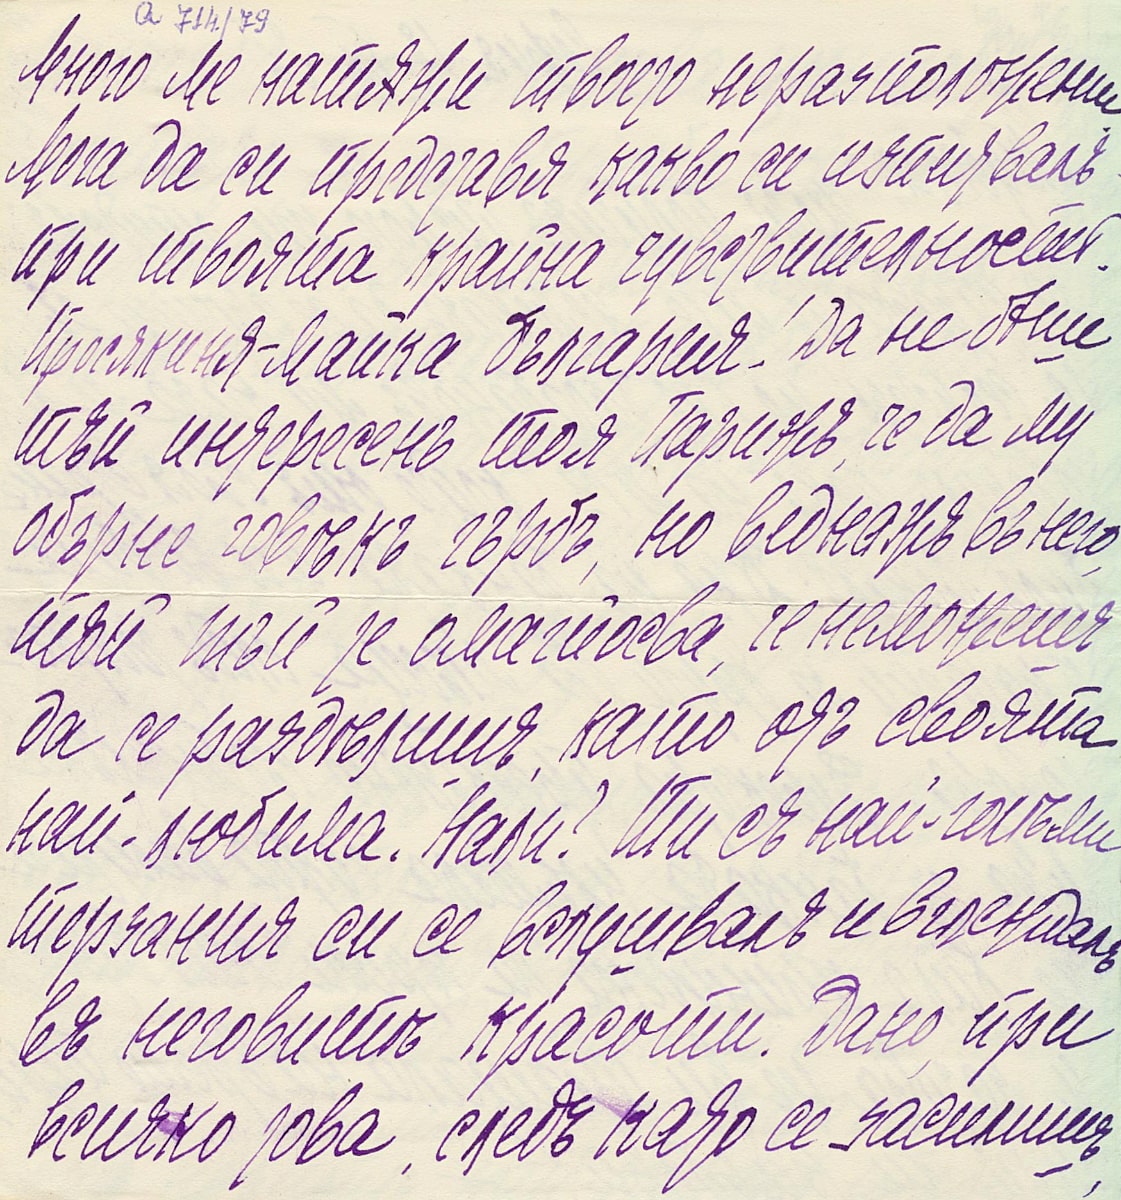 а 714/79
Много ме натъжи твоето неразположение
Мога да си представя какво си изпитвалъ
при твоята крайна чувствителность.
Просякиня-майка България! Да не бѣше
тъй интересенъ тоя Парижъ, че да му
обърне човѣкъ гърбъ, но веднажъ въ него,
той тъй те омагьосва, че неможешъ
да се раздѣлишъ, като отъ своята
най-любима. Нали? Ти съ най-голѣми
терзания си се вслушвалъ и вглеждалъ
въ неговитѣ красоти. Дано, при
всичко това, следъ като се засилишъ,